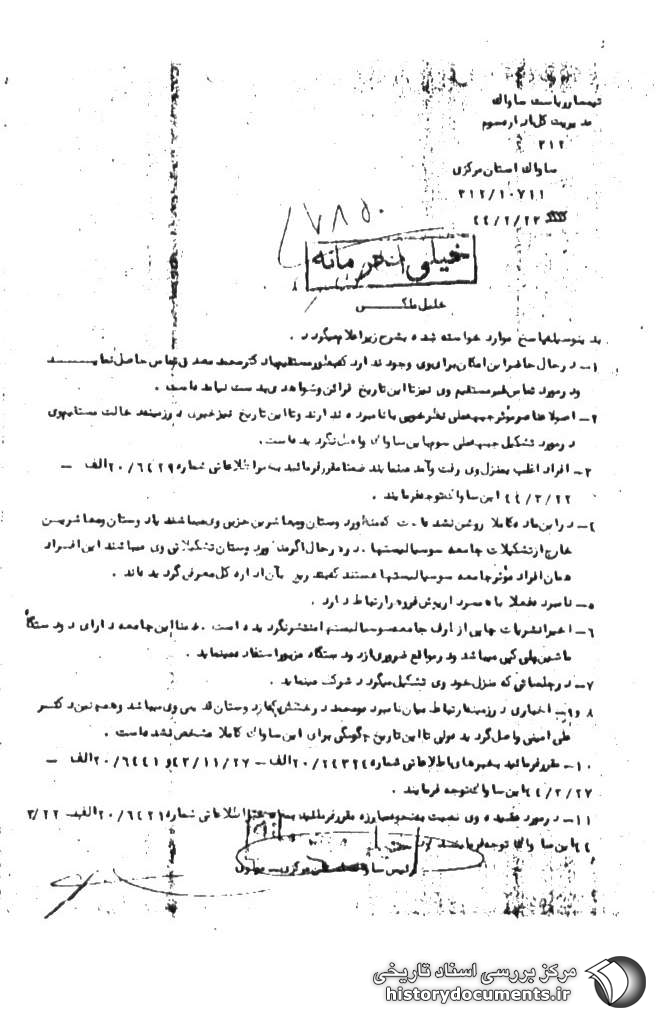 تیمسار ریاست ساواک
مدیریت کل اداره سوم
۳۱۲
ساواک استان مرکزی
۳۱۲/۱۰۷۱۱
۴۴/۲/۲۳
۷۸۵۰
خیلی محرمانه
خلیل ملکی
بدینوسیله پاسخ موارد خواسته شده بشرح زیر اعلام میگردد .
۱- در حال حاضر این امکان برای وی وجود ندارد که بطور مستقیم با دکتر محمد مصدق تماس حاصل نماید
و در مورد تماس غیر مستقیم وی نیز تا این تاریخ قرائن و شواهدی بدست نیامده است .
۲- اصولا عناصر مؤثر جبهه ملی نظر خوبی با نامبرده ندارند و تا این تاریخ نیز خبری در زمینه دخالت مستقیم وی
در مورد تشکیل جبهه ملی سوم باین ساواک واصل نگردیده است .
۳- افراد اغلب بمنزل وی رفت و آمد مینمایند ضمنا مقرر فرمائید به اطلاعاتی شماره ۲۰/۶۴۲۹الف -
۴۴/۲/۲۲ این ساواک توجه فرمایند .
۴- در این ماده کاملا روشن نشده است که منظور دوستان و معاشرین حزبی وی میباشند یا دوستان و معاشرین
خارج از تشکیلات جامعه سوسیالیستها . در هر حال اگر منظور دوستان تشکیلاتی وی میباشند این افراد
همان افراد مؤثر جامعه سوسیالیستها هستند که بتدریج بآن اداره کل معرفی گردیده اند .
۵- نامبرده فعلا با همسر داریوش فروهر ارتباط دارد .
۶- اخیرا نشریات چاپی از طرف جامعه سوسیالیستها منتشر نگردیده است . ضمنا این جامعه دارای دو دستگاه
ماشین پلی کپی میباشد و در مواقع ضروری از دو دستگاه مزبور استفاده مینماید .
۷- در جلساتی که منزل خود وی تشکیل میگردد شرکت مینماید .
۸ و ۹- اخباری در زمینه ارتباط میان نامبرده و محمد درخشش که از دوستان قدیمی وی میباشد و همچنین دکتر
علی امینی واصل گردیده ولی تا این تاریخ چگونگی برای این ساواک کاملا مشخص نشده است .
۱۰- مقرر فرمائید بخبرهای اطلاعاتی شماره ۲۰/۲۴۳۲۴الف - ۴۳/۱۱/۲۷ و ۲۰/۶۴۴۱الف -
۴۴/۲/۲۷ این ساواک توجه فرمایند .
۱۱- در مورد عقیده وی نسبت به نحوه مبارزه مقرر فرمائید به خبر اطلاعاتی شماره ۲۰/۶۴۲۱الف - ۲/۲۲/
۴۴ این ساواک توجه فرمایند
رئیس ساواک استان مرکزی - مولوی
مرکز بررسی اسناد تاریخی
historydocuments.ir